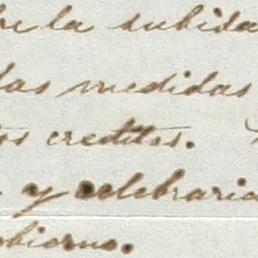 la subida
las medidas
creditos.
y celebraria